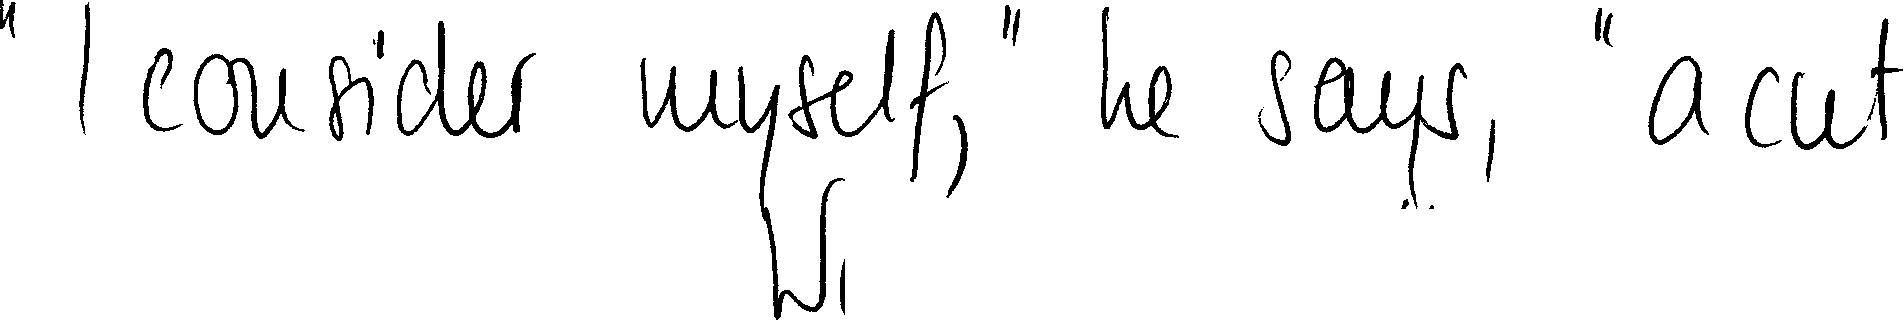 "I consider myself," he says, "a cut